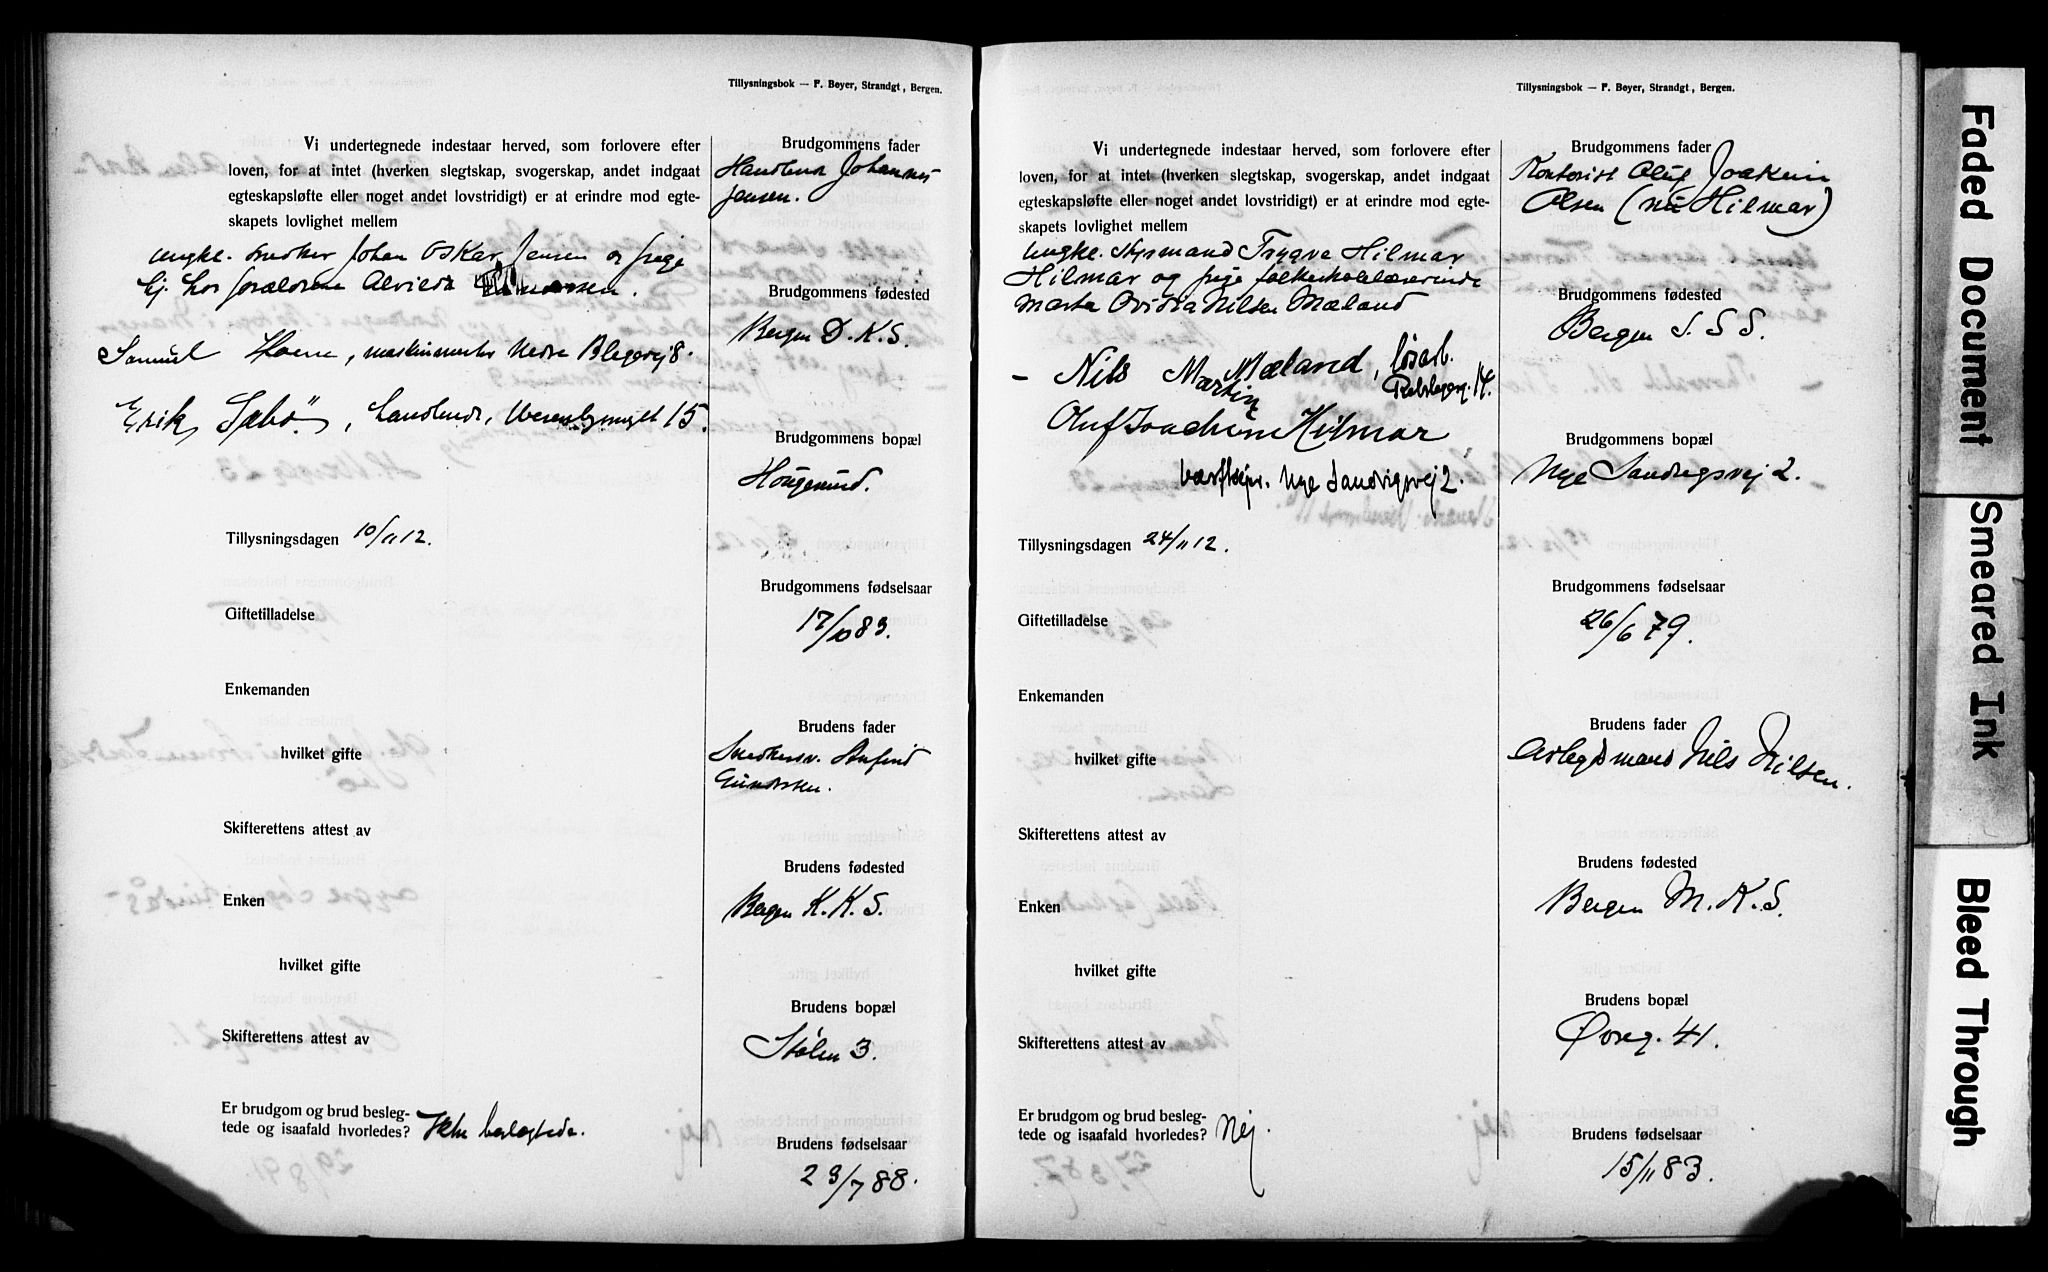 Tillysningsbok — F. Beyer, Strandgt, Bergen.
Vi undertegnede indestaar herved, som forlovere efter
loven, for at intet (hverken slegtskap, svogerskap, andet indgaat
egteskapsløfte eller noget andet lovstridigt) er at erindre mod egte-
skapets lovlighet mellem
ungke. snedker Johan Oskar Jensen og pige
hj. hos forældrene Alvilda Gundersen.
Samuel, maskinmester Nedre Blegevei 8.
Erik Sæbö, handlende, 15.
Tillysningsdagen 10/11 12.
Giftetilladelse
Enkemanden
hvilket gifte
Skifterettens attest av
Enken
hvilket gifte
Skifterettens attest av
Er brudgom og brud besleg-
tede og isaafald hvorledes? Ikke beslegtede.
Brudgommens fader
Handlende Johannes
Jensen.
Brudgommens fødested
Bergen D. K. S.
Brudgommens bopæl
Haugesund.
Brudgommens fødselsaar
17/10 83.
Brudens fader
Snedkersv. Anfind
Gundersen.
Brudens fødested
Bergen K. K. S.
Brudens bopæl
Stølen 3.
Brudens fødselsaar
23/7 88.
Tillysningsbok — F. Beyer, Strandgt, Bergen.
Vi undertegnede indestaar herved, som forlovere efter
loven, for at intet (hverken slegtskap, svogerskap, andet indgaat
egteskapsløfte eller noget andet lovstridigt) er at erindre mod egte-
skapets lovlighet mellem
ungke. styrmand Trygve Hilmar
Hilmar og pige folkeskolelærerinde
Marta Ovidia Nilsen Mæland
— Nils Martin Mæland, løsarb.
Rebslagerg. 14.
Oluf Joachim Hilmar
Nye Sandvigsvej 2.
Tillysningsdagen 24/11 12.
Giftetilladelse
Enkemanden
hvilket gifte
Skifterettens attest av
Enken
hvilket gifte
Skifterettens attest av
Er brudgom og brud besleg-
tede og isaafald hvorledes? Nej.
Brudgommens fader
Kontorist Oluf Joakim
Olsen (nu Hilmar)
Brudgommens fødested
Bergen S. S S.
Brudgommens bopæl
Nye Sandvigsvej 2.
Brudgommens fødselsaar
26/6 79.
Brudens fader
Arbeidsmand Nils Nilsen.
Brudens fødested
Bergen M. K. S.
Brudens bopæl
Øvreg. 41.
Brudens fødselsaar
15/11 83.
Faded Document
Smeared Ink
Bleed Through